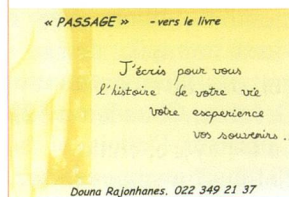 « PASSAGE » - vers le livre
J'écris pour vous
l'histoire de votre vie
votre experience
vos souvenirs.
Douna Rajonhanes. 022 349 21 37